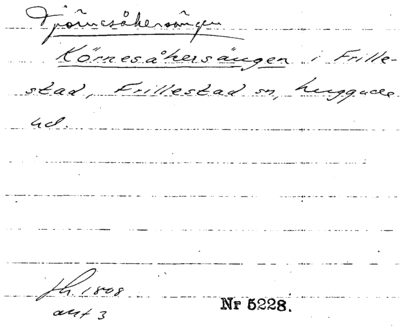 Tjörnesåkersängen
Körnesåkersängen i Frille-
stad, Frillestad sn, huggude
ud.
fh. 1808
akt 3
Nr 5228.